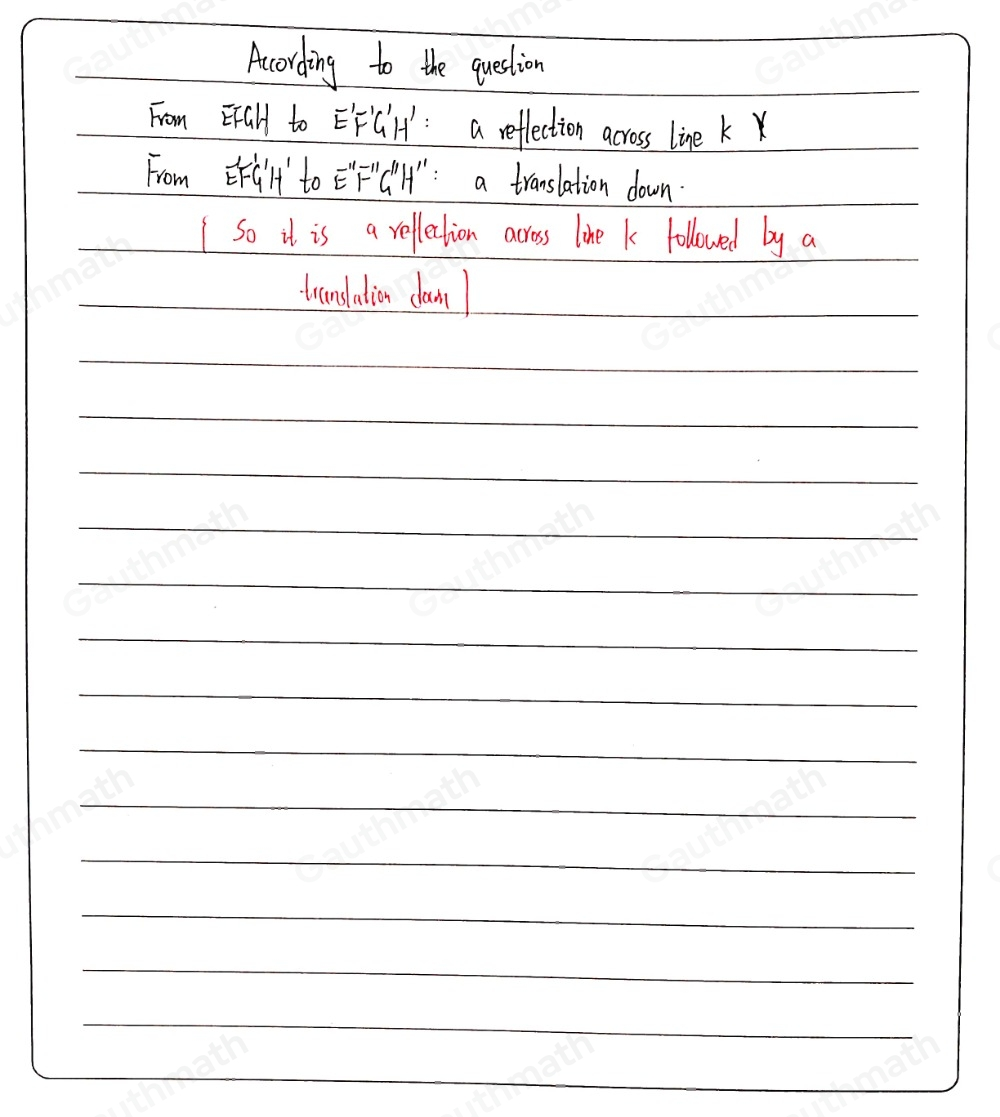 According to the question
From EFGH to E'F'G'H': a reflection across line k
From E'F'G'H' to E"F"G"H": a translation down.
{ So it is a reflection across line k followed by a
translation down }
Gauthmath